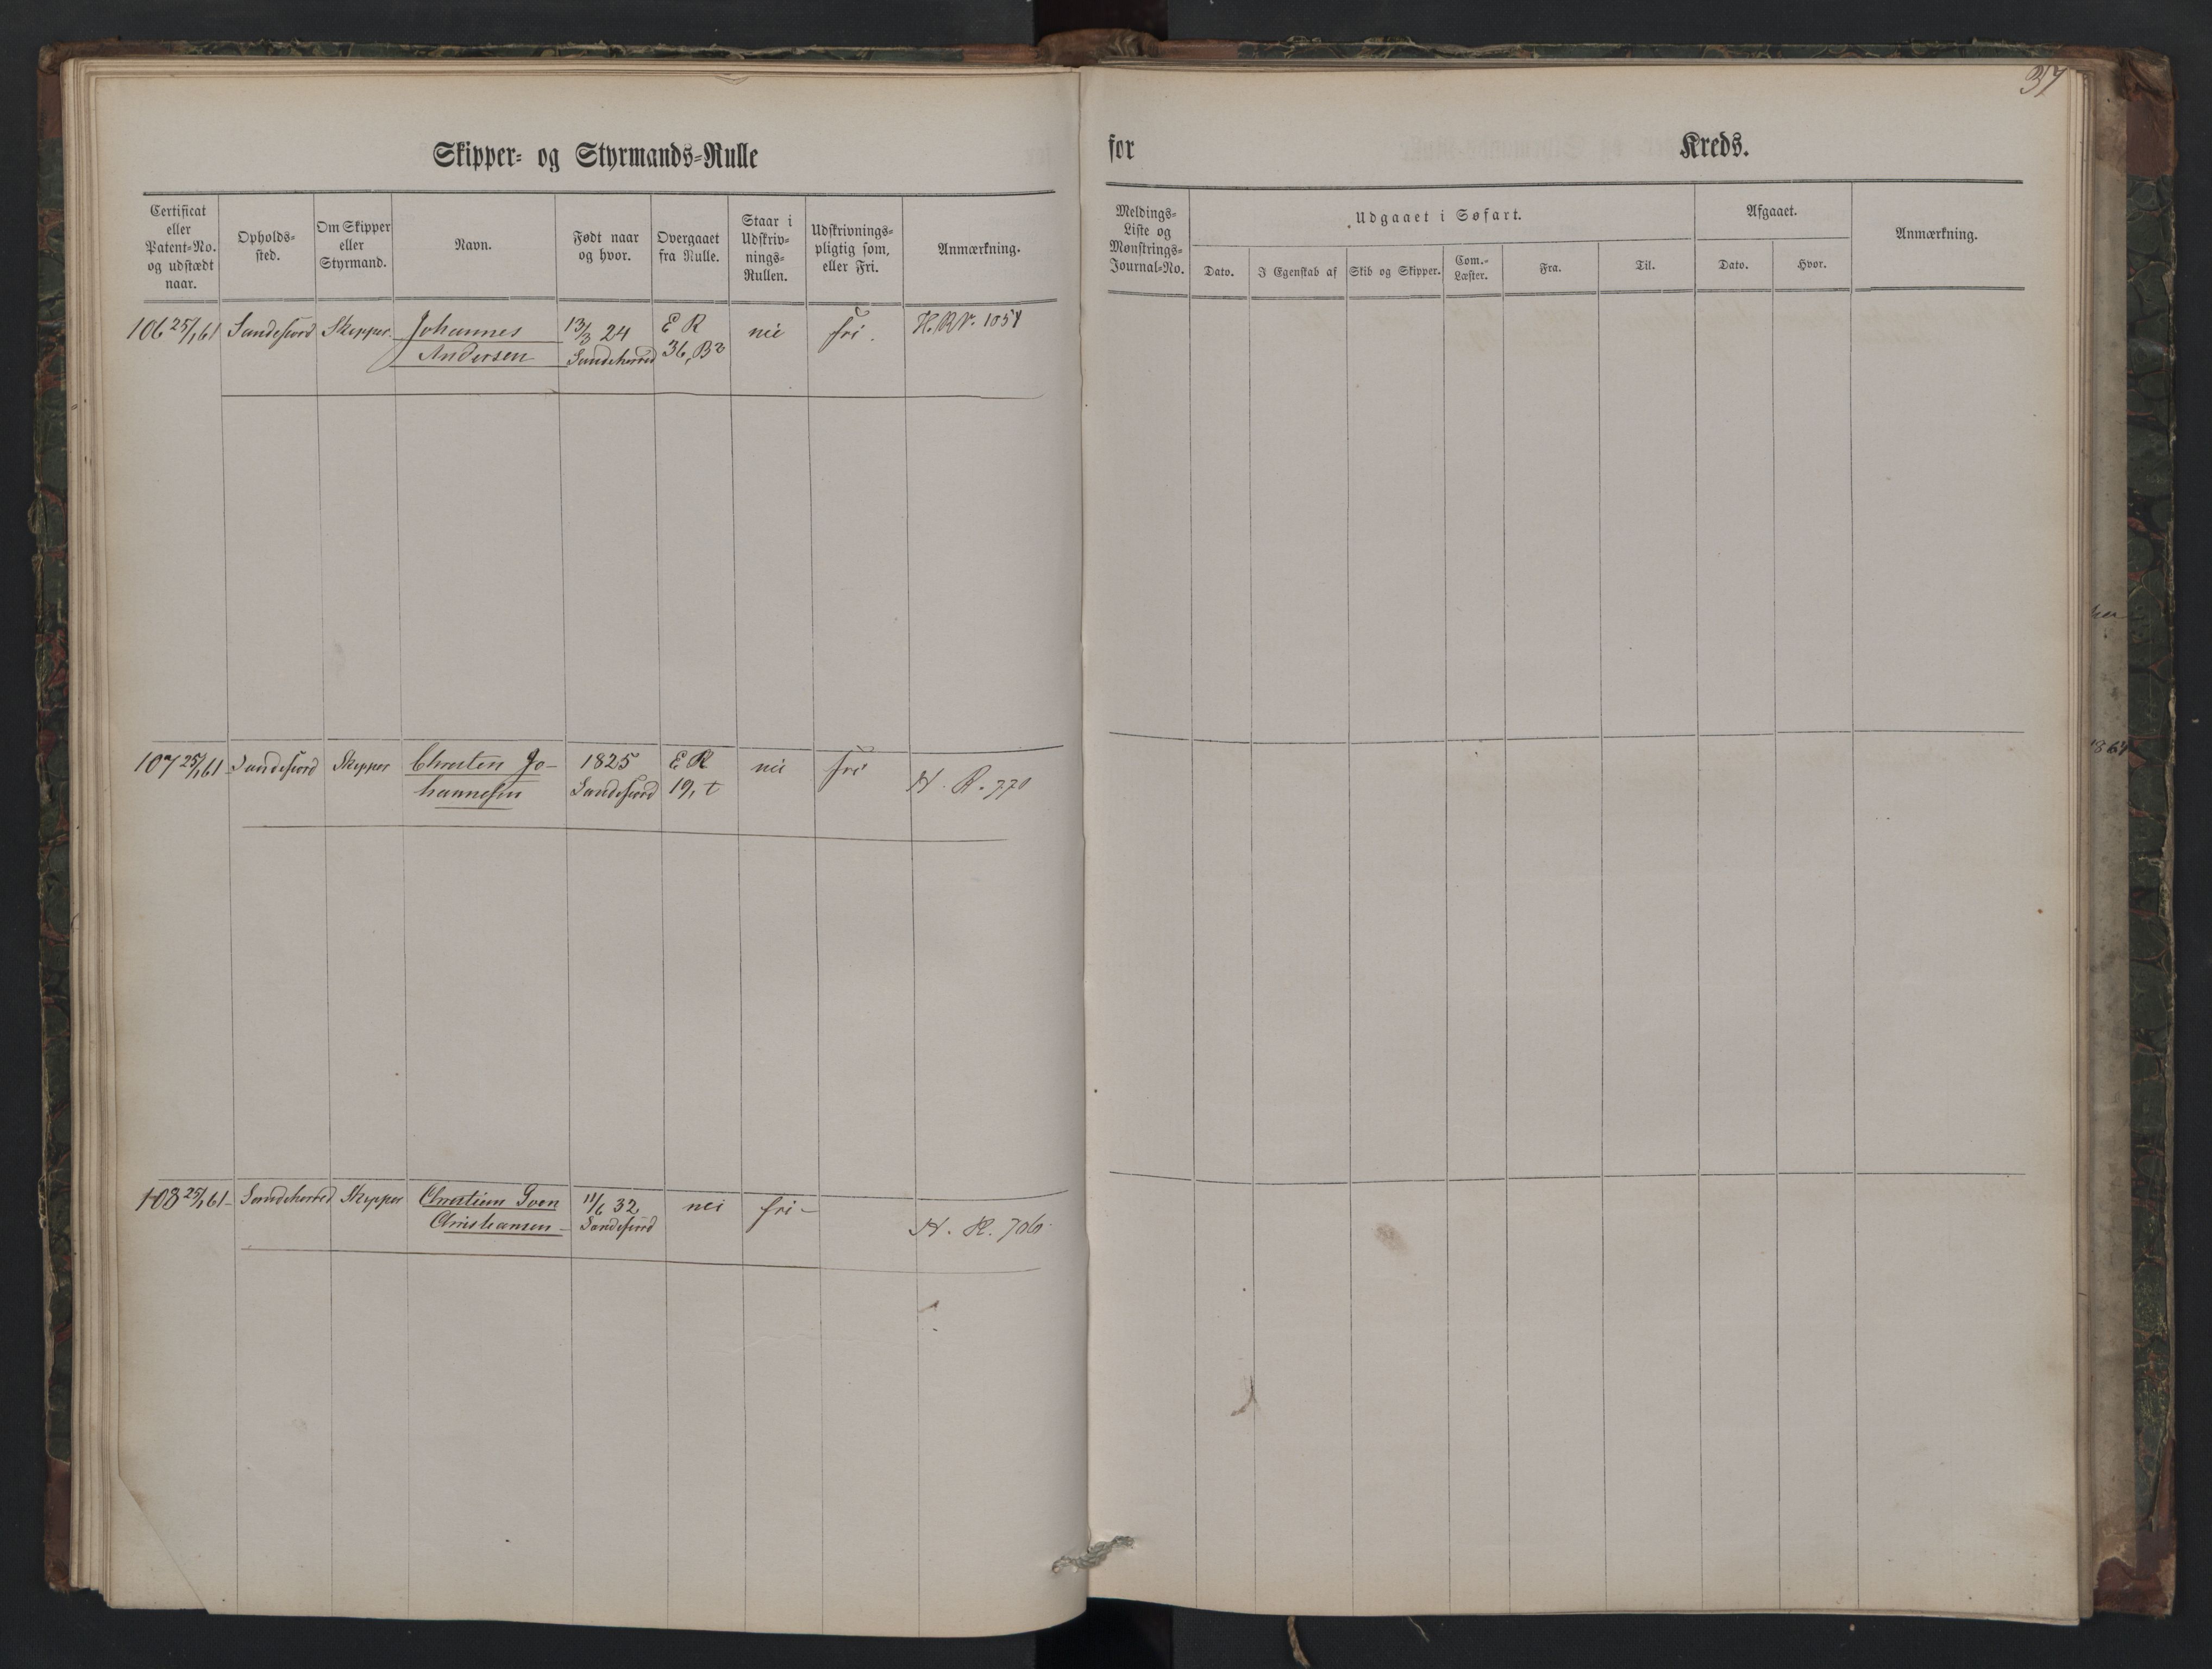 37
Skipper- og Styrmands-Rulle
for Kreds.
Certificat
eller
Patent-No.
og udstædt
naar.
Opholds-
sted.
Om Skipper
eller
Styrmand.
Navn.
Født naar
og hvor.
Overgaaet
fra Rulle.
Staar i
Udskriv-
nings-
Rullen.
Udskrivnings-
pligtig som,
eller Fri.
Anmærkning.
Meldings-
Liste og
Mønstrings-
Journal-No.
Udgaaet i Søfart.
Dato.
I Egenskab af
Skib og Skipper.
Com.-
Læster.
Fra.
Til.
Afgaaet.
Dato.
Hvor.
Anmærkning.
106 25/1 61 Sandefiord Skipper Johannes 13/3 24 E R nei fri. H.R.N. 1054
Andersen Sandeherred 36, B2
107 25/1 61 Sandefiord Skipper Christen Jo- 1825 E R nei fri H. R. 770
hannesen Sandefiord 19, t
108 25/1 61 Sandeherred Skipper Christian Sven 11/6 32 nei fri
Christiansen Sandefiord H. R. 706